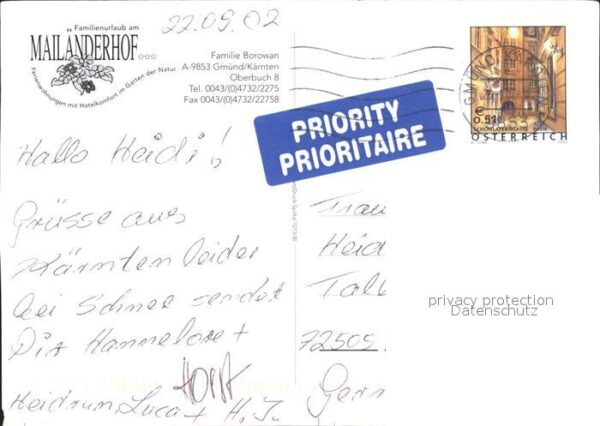 22.09.02
Familienurlaub am
MAILÄNDERHOF
Ferienwohnungen mit Hotelkomfort im Garten der Natur
Familie Borowan
A-9853 Gmünd/Kärnten
Oberbuch 8
Tel. 0043/(0)4732/2275
Fax 0043/(0)4732/22758
€
0.51
SCHÖNLATERNGASSE WIEN
ÖSTERREICH
PRIORITY
PRIORITAIRE
Hallo Heidi!
Grüsse aus
Kärnten leider
bei Schnee sendet
Dir Hannelore +
Horst
Heidrun, Luca + H.J.
Frau
Heid
Tal
72505
Ger
privacy protection
Datenschutz